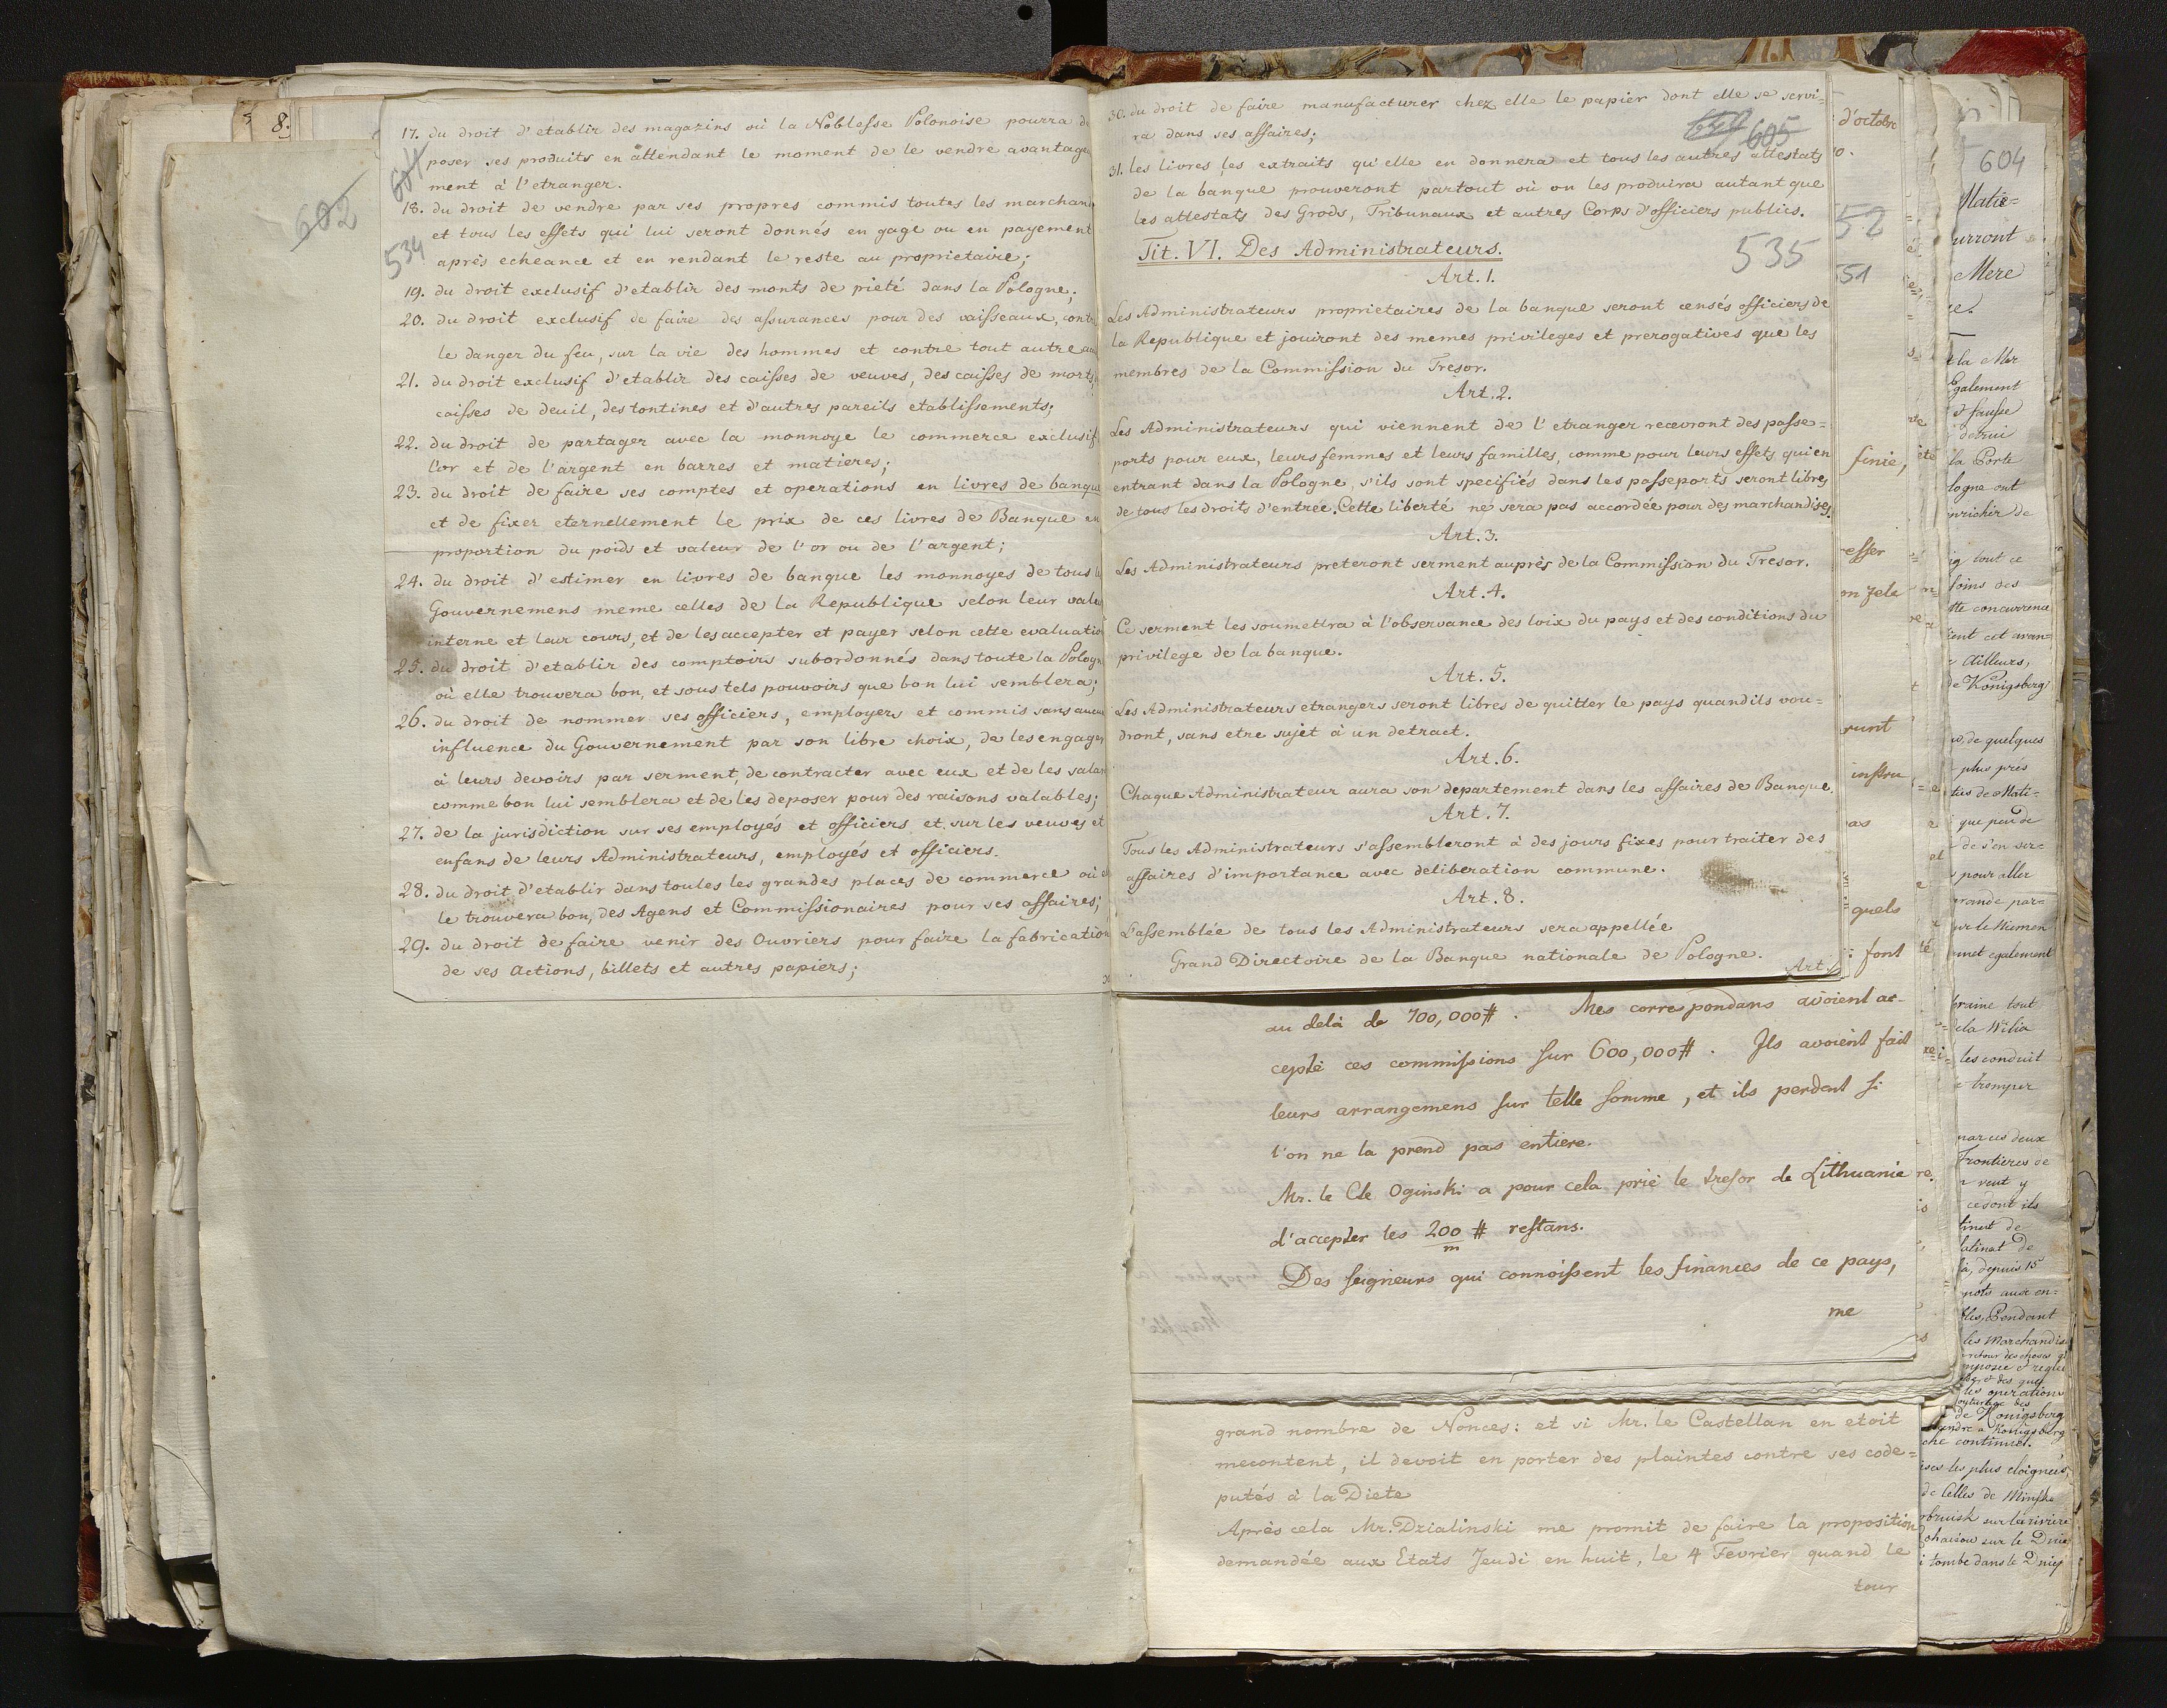 8.
602
604
534
17. du droit d'etablir des magazins où la Noblesse Polonoise pourra de
poser ses produits en attendant le moment de le vendre avantage
ment à l'etranger.
18. du droit de vendre par ses propres commis toutes les marchan
et tous les effets qui lui seront donnés en gage ou en payement
après echeance et en rendant le reste au proprietaire;
19. du droit exclusif d'etablir des monts de pieté dans la Pologne;
20. du droit exclusif de faire des assurances pour des vaisseaux, cont
le danger du feu, sur la vie des hommes et contre tout autre
21. du droit exclusif d'etablir des caisses de veuves, des caisses de morts,
caisses de deuil, des tontines et d'autres pareils etablissements;
22. du droit de partager avec la monnoye le commerce exclusif
l'or et de l'argent en barres et matieres;
23. du droit de faire ses comptes et operations en livres de banque
et de fixer eternellement le prix de ces livres de Banque en
proportion du poids et valeur de l'or ou de l'argent;
24. du droit d'estimer en livres de banque les monnoyes de tous l
Gouvernemens meme celles de la Republique selon leur vale
interne et leur cours, et de les accepter et payer selon cette evaluatio
25. du droit d'etablir des comptoirs subordonnés dans toute la Pologn
où elle trouvera bon, et sous tels pouvoirs que bon lui semblera;
26. du droit de nommer ses officiers, employers et commis sans aucun
influence du Gouvernement par son libre choix, de les engager
à leurs devoirs par serment, de contracter avec eux et de les salar
comme bon lui semblera et de les deposer pour des raisons valables;
27. de la jurisdiction sur ses employés et officiers et sur les veuves et
enfans de leurs Administrateurs, employés et officiers.
28. du droit d'etablir dans toutes les grandes places de commerce où e
le trouvera bon, des Agens et Commissionaires pour ses affaires;
29. du droit de faire venir des Ouvriers pour faire la fabrication
de ses Actions, billets et autres papiers;
30. du droit de faire manufacturer chez elle le papier dont elle se servi=
ra dans ses affaires;
605
31. les livres, les extraits qu'elle en donnera et tous les autres attestats
de la banque prouveront partout où on les produira autant que
les attestats des Grods, Tribunaux et autres Corps d'officiers publics.
Tit. VI. Des Administrateurs.
535
Art. 1.
Les Administrateurs proprietaires de la banque seront censés officiers de
la Republique et jouiront des memes privileges et prerogatives que les
membres de la Commission du Tresor.
Art. 2.
Les Administrateurs qui viennent de l'etranger recevront des passe=
ports pour eux, leurs femmes et leurs familles, comme pour leurs effets qui en
entrant dans la Pologne, s'ils sont specifiés dans les passeports seront libres
de tous les droits d'entrée. Cette liberté ne sera pas accordée pour des marchandises.
Art. 3.
Les Administrateurs preteront serment auprès de la Commission du Tresor.
Art. 4.
Ce serment les soumettra à l'observance des loix du pays et des conditions du
privilege de la banque.
Art. 5.
Les Administrateurs etrangers seront libres de quitter le pays quand ils vou=
dront, sans etre sujet à un detract.
Art. 6.
Chaque Administrateur aura son departement dans les affaires de Banque.
Art. 7.
Tous les Administrateurs s'assembleront à des jours fixes pour traiter des
affaires d'importance avec deliberation commune.
Art. 8.
L'assemblée de tous les Administrateurs sera appellée
Grand Directoire de la Banque nationale de Pologne.
Art.
au delà de 700,000 #. Mes correspondans avoient ac-
cepté ces commissions sur 600,000 #. Ils avoient fait
leurs arrangemens sur telle somme, et ils perdent si
l'on ne la prend pas entiere.
Mr. le Cte Oginski a pour cela prié le tresor de Lithuanie
d'accepter les 200/m # restans.
Des seigneurs qui connoissent les finances de ce pays,
me
grand nombre de Nonces: et si Mr. le Castellan en etoit
mecontent, il devoit en porter des plaintes contre ses code=
putés à la Diete
Après cela Mr. Dzialinski me promit de faire la proposition
demandée aux Etats Jeudi en huit, le 4 Fevrier quand le
tour
d'octobr
52
51
finie,
esser
on zele
runt
instru
as
quels
font
604
Matie=
urront
Mere
t la Mer
Egalement
et fausse
la Porte
logne ont
nrichir de
ig tout ce
soins des
tte concurrence
ient cet avan=
Ailleurs,
de Konigsberg
de quelques
plus près
que peu de
de s'en ser=
pour aller
grande par=
sur le Niemen
met egalement
braine tout
ela Wilia
les conduit
tromper
par ces deux
Frontieres de
veut y
ce dont ils
tinat de
latinat de
depuis 15
Pendant
les Marchandis
les operations
de Konigsberg
endre a Konigsberg
che continuel.
ises les plus eloignées,
de Celles de Minsk
obruisk sur la riviere
chaisow sur le Dnie
i tombe dans le Dniep